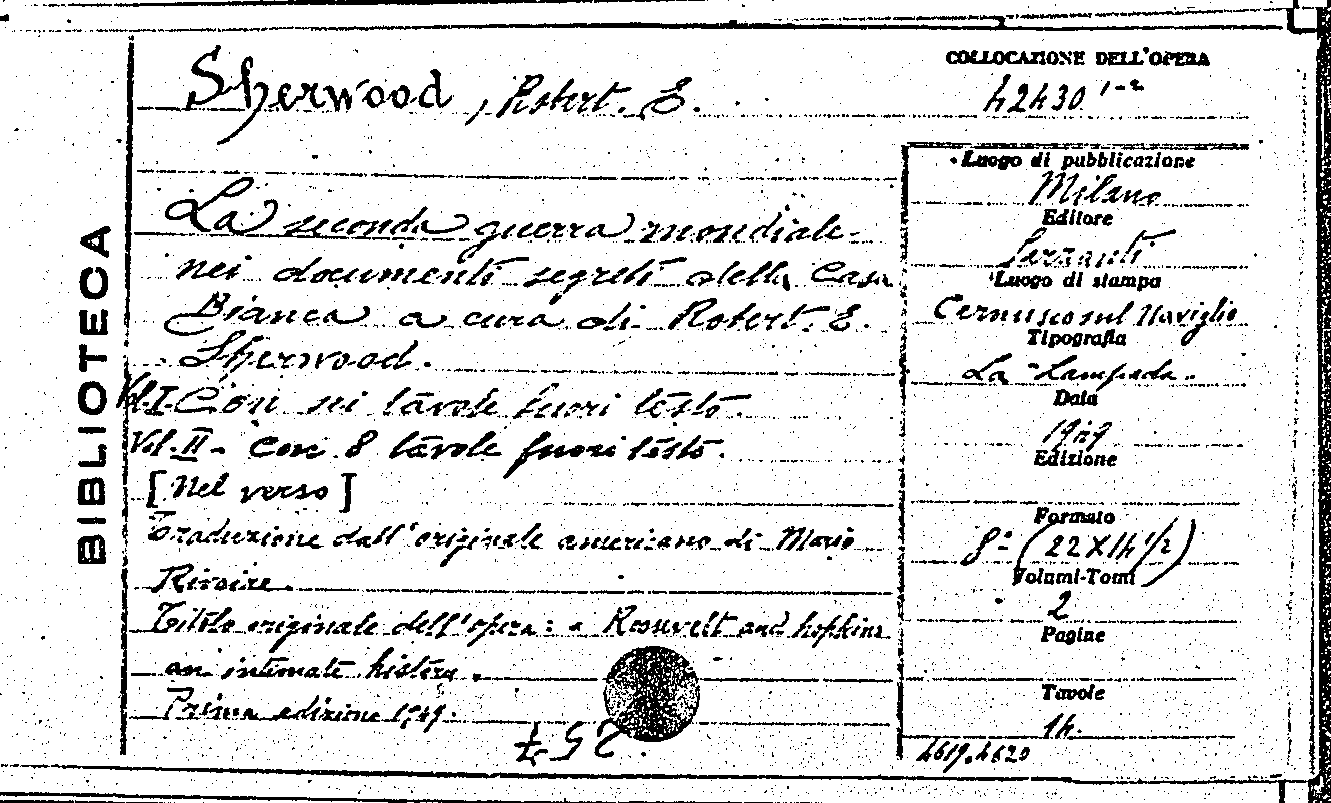 BIBLIOTECA
Sherwood, Robert. E.
La seconda guerra mondiale
nei documenti segreti della Casa
Bianca a cura di Robert. E.
Sherwood.
Vol. I - Con sei tavole fuori testo.
Vol. II - Con 8 tavole fuori testo.
[Nel verso]
Traduzione dall'originale americano di Mario
Rivoire.
Titolo originale dell'opera: « Rosuvelt and hopkins
an intimate history.
Prima edizione 1949.
COLLOCAZIONE DELL'OPERA
42430 1-2
Luogo di pubblicazione
Milano
Editore
Garzanti
Luogo di stampa
Cernusco sul Naviglio
Tipografia
La "Lampada"
Data
1949
Edizione
Formato
8° (22X14 1/2)
Volumi-Tomi
2
Pagine
Tavole
14
4619.4620